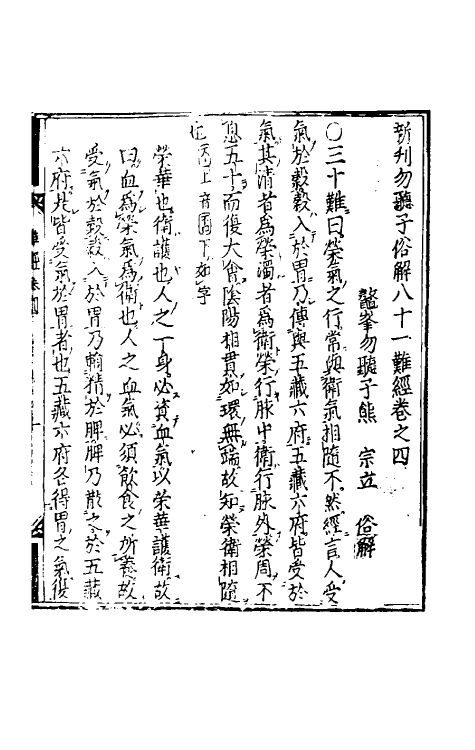 新刋勿聽子俗解八十一難經卷之四
鼇峯勿聽子熊 宗立 俗解
〇三十難曰榮氣之行常與衛氣相隨不然經言人受
氣於穀穀入於胃乃傳與五藏六府五藏六府皆受於
氣其清者爲榮濁者爲衛榮行脉中衛行脉外榮周不
息五十而復大會陰陽相貫如環無端故知榮衛相隨
也
榮華也衛護也人之一身必資血氣以榮華護衛故
曰血爲榮氣爲衛也人之血氣必須飲食之所養故
受氣於穀穀入於胃乃輸精於脾脾乃散之於五藏
六府其皆受氣於胃者也五藏六府各得胃之氣後